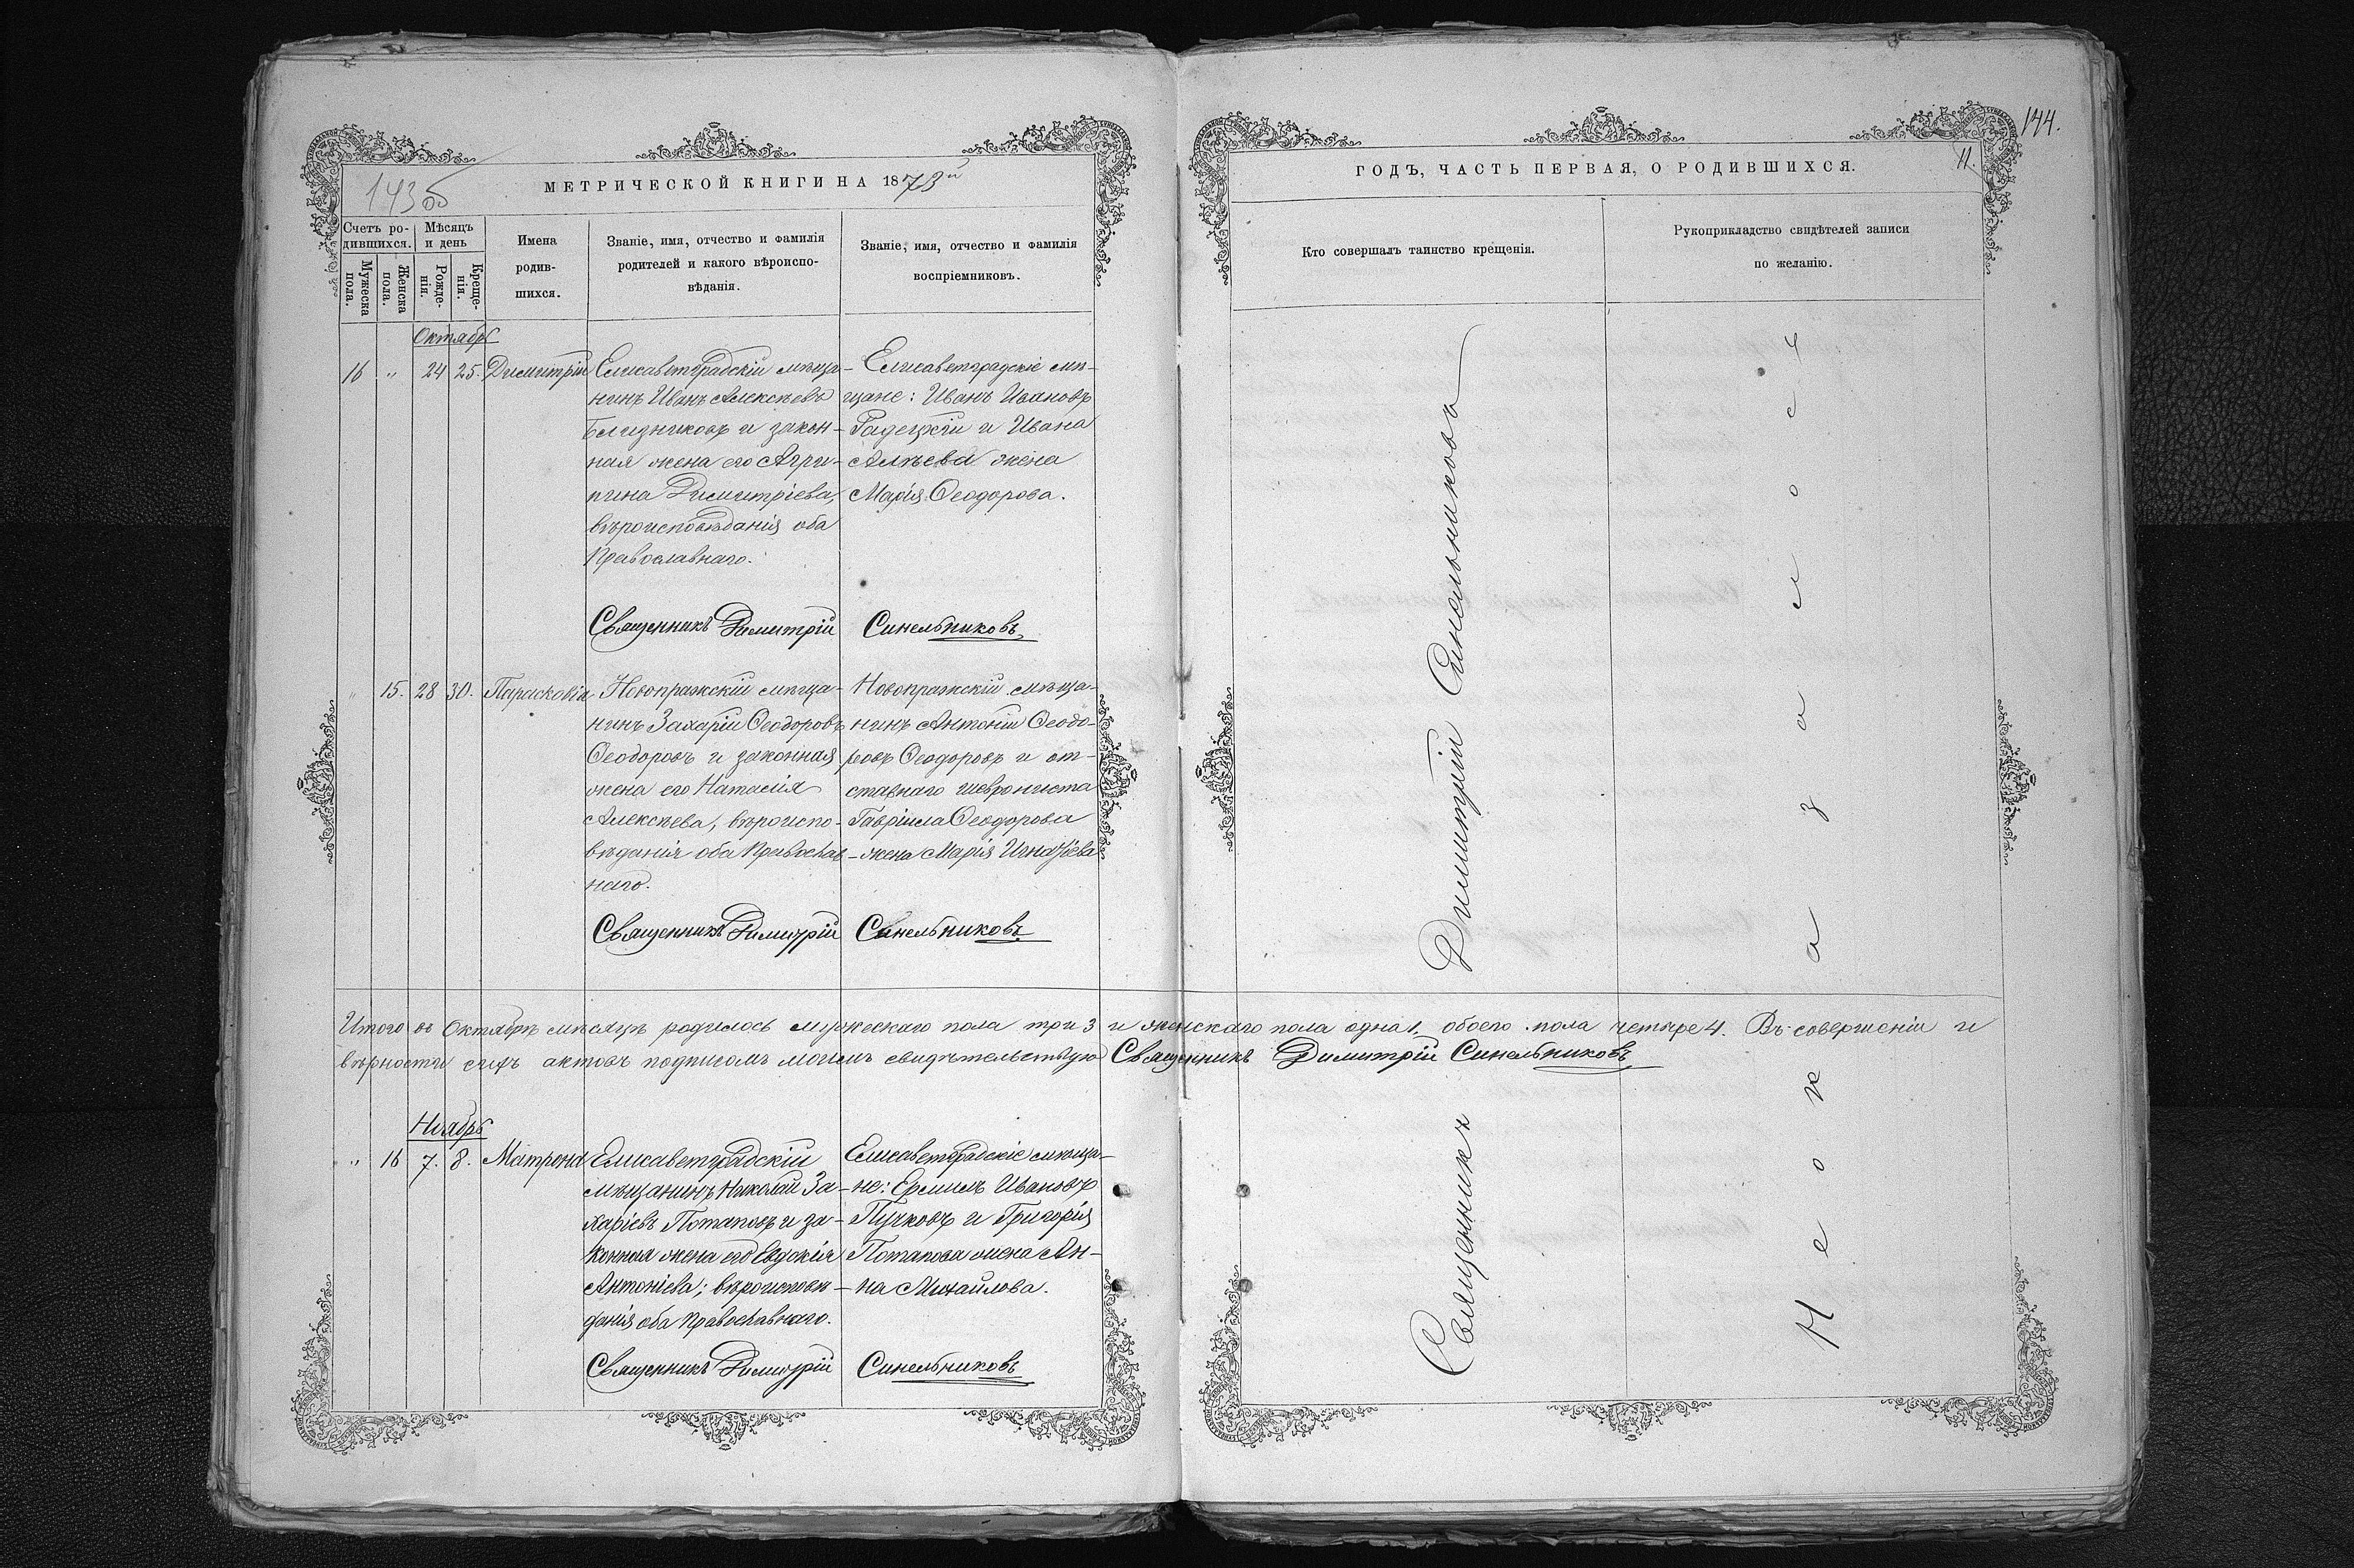 143 об
МЕТРИЧЕСКОЙ КНИГИ НА 1873й
Счетъ ро-
дившихся.
Мужеска пола.
Женска пола.
Мѣсяцъ
и день
Рожде-
нія.
Креще-
нія.
Имена
родив-
шихся.
Званіе, имя, отчество и фамилія
родителей и какого вѣроиспо-
вѣданія.
Званіе, имя, отчество и фамилія
воспріемниковъ.
Октябрь
16 " 24 25. Димитрій
Елисаветградскій мѣща-
нинъ Иванъ Алексѣевъ
Близниковъ и закон-
ная жена его Агри-
пина Димитріева,
вѣроисповѣданія оба
Православнаго.
Елисаветградскіе мѣ-
щане: Иванъ Ивановъ
Гадецкій и Ивана
жена
Марія Ѳеодорова.
Священникъ Димитрій Синельниковъ
" 15. 28 30. Парасковія
Новопражскій мѣща-
нинъ Захарій Ѳеодоровъ
Ѳеодоровъ и законная
жена его Наталія
Алексѣева, вѣроиспо-
вѣданія оба Православ-
наго.
Новопражскій мѣща-
нинъ Антоній Ѳеодо-
ровъ Ѳеодоровъ и от-
ставнаго шеврониста
Гавріила Ѳеодорова
жена Марія Игнатіева
Священникъ Димитрій Синельниковъ
Итого въ Октябрѣ мѣсяцѣ родилось мужескаго пола три 3 и женскаго пола одна 1, обоего пола четыре 4. Въ совершеніи и
вѣрности сихъ актовъ подписомъ моимъ свидѣтельствую Священникъ Димитрій Синельниковъ
Ноябрь
" 16 7. 8. Матрона
Елисаветградскій
мѣщанинъ Николай За-
харіевъ Потаповъ и за-
конная жена его Евдокія
Антоніева; вѣроисповѣ-
данія оба Православнаго.
Елисаветградскіе мѣща-
не: Ермилъ Ивановъ
Пучковъ и Григорія
Потапова жена Ан-
на Михайлова.
Священникъ Димитрій Синельниковъ
144.
ГОДЪ, ЧАСТЬ ПЕРВАЯ, О РОДИВШИХСЯ.
11.
Кто совершалъ таинство крещенія.
Рукоприкладство свидѣтелей записи
по желанію.
Священникъ Димитрій Синельниковъ
Неоказалось